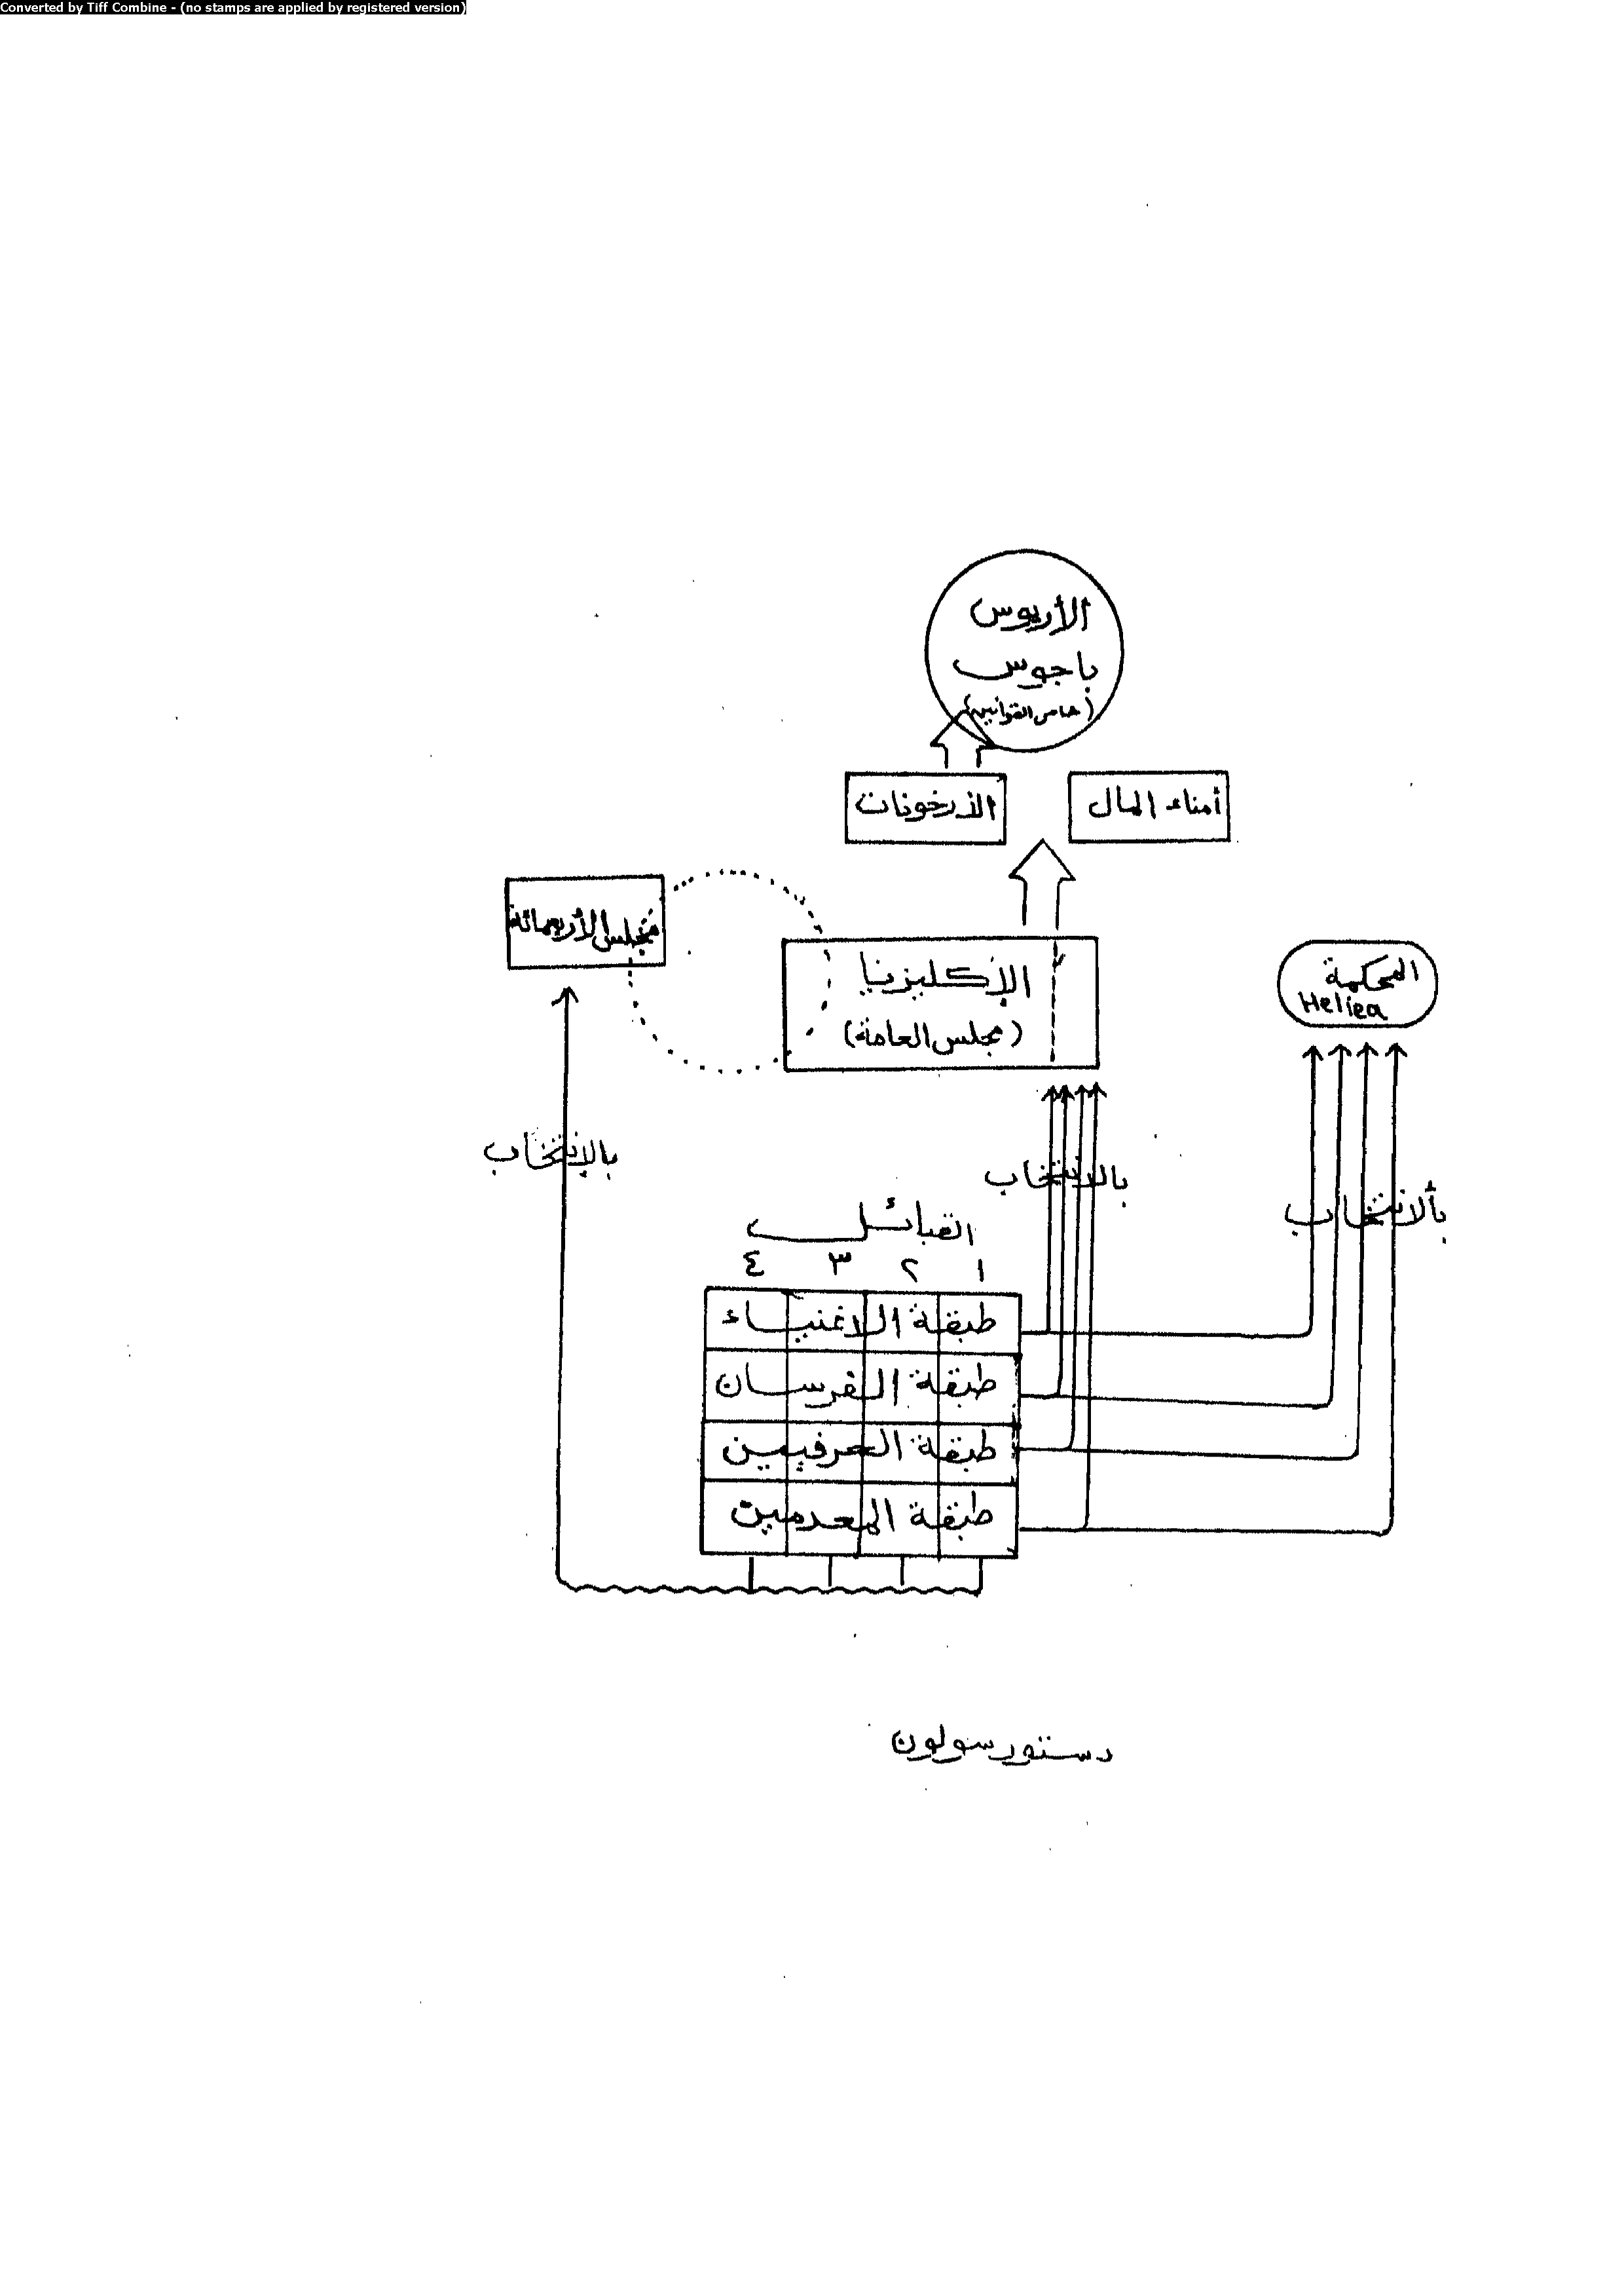 Converted by Tiff Combine - (no stamps are applied by registered version)
الأريوس
باجوس
(حامى القوانين)
أمناء المال
الأرخونات
مجلس الأربعمائة
الإكليزيا
(مجلس العامة)
المحكمة
Heliea
بالإنتخاب
بالانتخاب
بالانتخاب
القبائل
١ ٢ ٣ ٤
طبقة الاغنياء
طبقة الفرسان
طبقة الحرفيين
طبقة المعدمين
دستور سولون